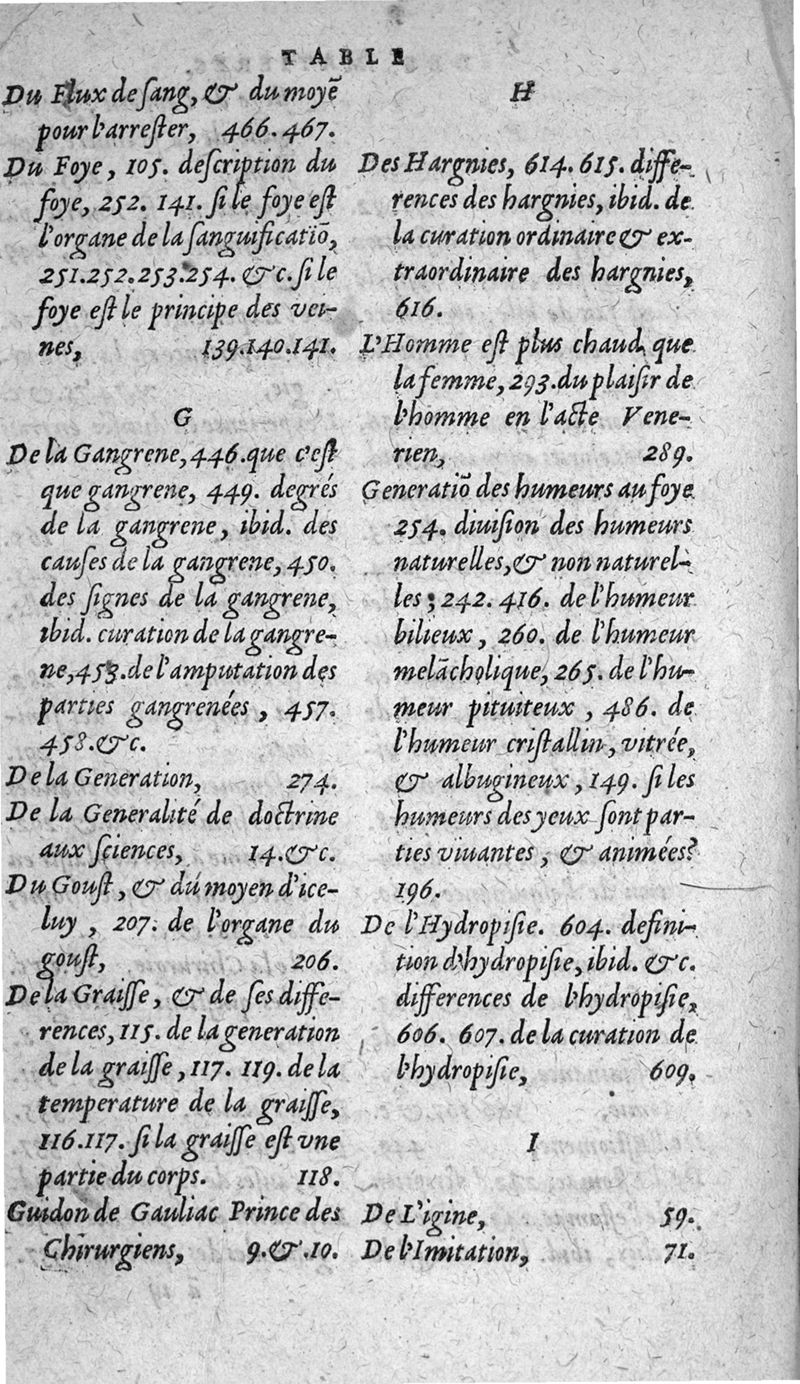 TABLE
Du Flux de ſang, & du moyẽ
pour l'arreſter, 466. 467.
Du Foye, 105. deſcription du
foye, 252. 141. ſi le foye eſt
l'organe de la ſanguificatiõ,
251.252.253.254. &c. ſi le
foye eſt le principe des vei-
nes, 139.140.141.
G
De la Gangrene, 446. que c'eſt
que gangrene, 449. degrés
de la gangrene, ibid. des
cauſes de la gangrene, 450.
des ſignes de la gangrene,
ibid. curation de la gangre-
ne, 453. de l'amputation des
parties gangrenées, 457.
458. &c.
De la Generation, 274.
De la Generalité de doctrine
aux ſciences, 14. &c.
Du Gouſt, & du moyen d'ice-
luy, 207. de l'organe du
gouſt, 206.
De la Graiſſe, & de ſes diffe-
rences, 115. de la generation
de la graiſſe, 117. 119. de la
temperature de la graiſſe,
116.117. ſi la graiſſe eſt vne
partie du corps. 118.
Guidon de Gauliac Prince des
Chirurgiens, 9. &. 10.
H
Des Hargnies, 614. 615. diffe-
rences des hargnies, ibid. de
la curation ordinaire & ex-
traordinaire des hargnies,
616.
L'Homme eſt plus chaud, que
la femme, 293. du plaiſir de
l'homme en l'acte Vene-
rien, 289.
Generatiõ des humeurs au foye
254. diuiſion des humeurs
naturelles, & non naturel-
les; 242. 416. de l'humeur
bilieux, 260. de l'humeur
melãcholique, 265. de l'hu-
meur pituiteux, 486. de
l'humeur criſtallin, vitrée,
& albugineux, 149. ſi les
humeurs des yeux ſont par-
ties viuantes, & animées?
196.
De l'Hydropiſie. 604. defini-
tion d'hydropiſie, ibid. &c.
differences de l'hydropiſie,
606. 607. de la curation de
l'hydropiſie, 609.
I
De L'igine, 59.
De l'Imitation, 71.